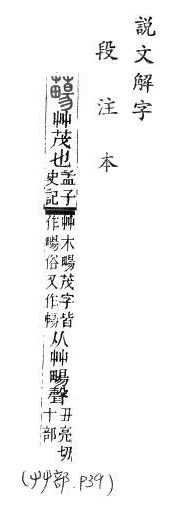 説文解字
段注本
艸茂也孟子史記艸木畼茂字皆作畼俗又作暢从艸畼聲丑亮切十部
(艸部.P39)